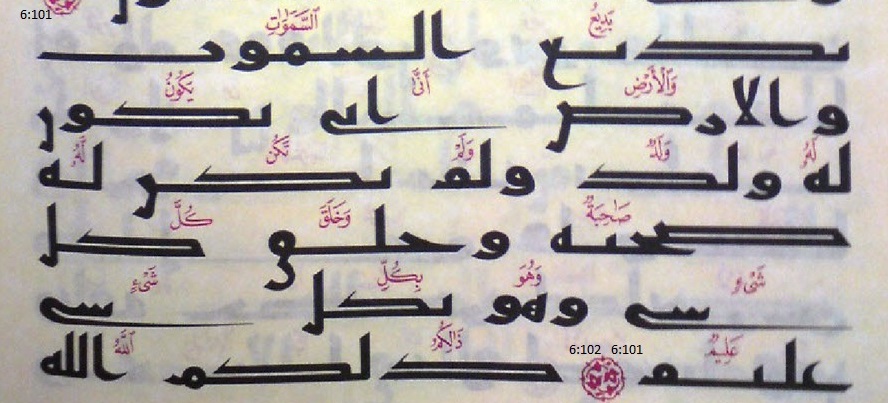 6:101
بَدِيعُ ٱلسَّمَٰوَٰتِ
بديع السموت
وَٱلْأَرْضِ أَنَّىٰ يَكُونُ
والارض انى يكون
لَهُۥ وَلَدٌ وَلَمْ تَكُن لَّهُۥ
له ولد ولم تكن له
صَٰحِبَةٌ وَخَلَقَ كُلَّ
صحبه وخلق كل
شَىْءٍ وَهُوَ بِكُلِّ شَىْءٍ
شى وهو بكل شى
عَلِيمٌ 6:101 6:102 ذَٰلِكُمُ ٱللَّهُ
عليم ذلكم الله